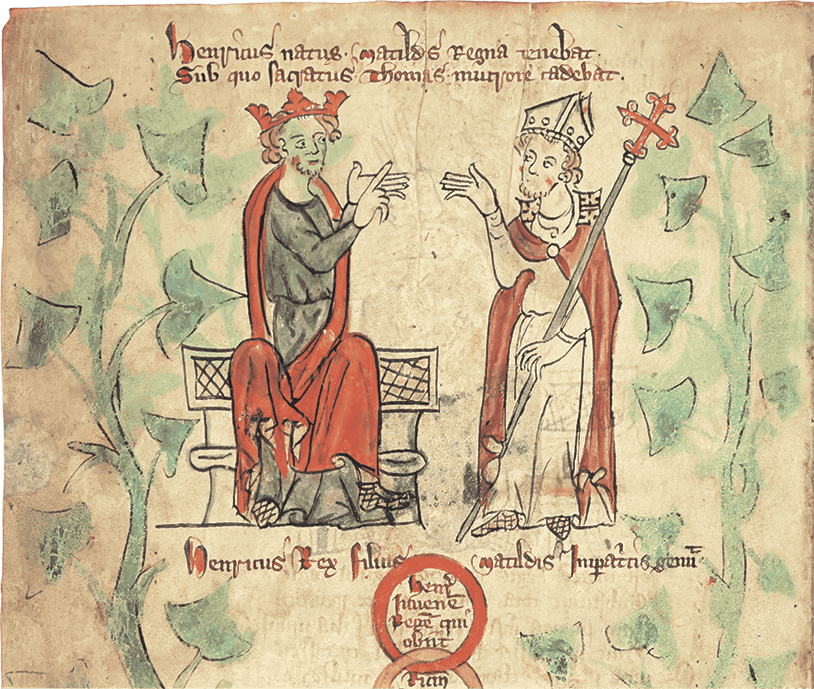 Henricus natus Matildis Regna tenebat.
Sub quo sacratus Thomas mucrone cadebat.
Henricus Rex filius Matildis Inperatricis
Henr
iuvene
Rege qui
obiit
Ricar